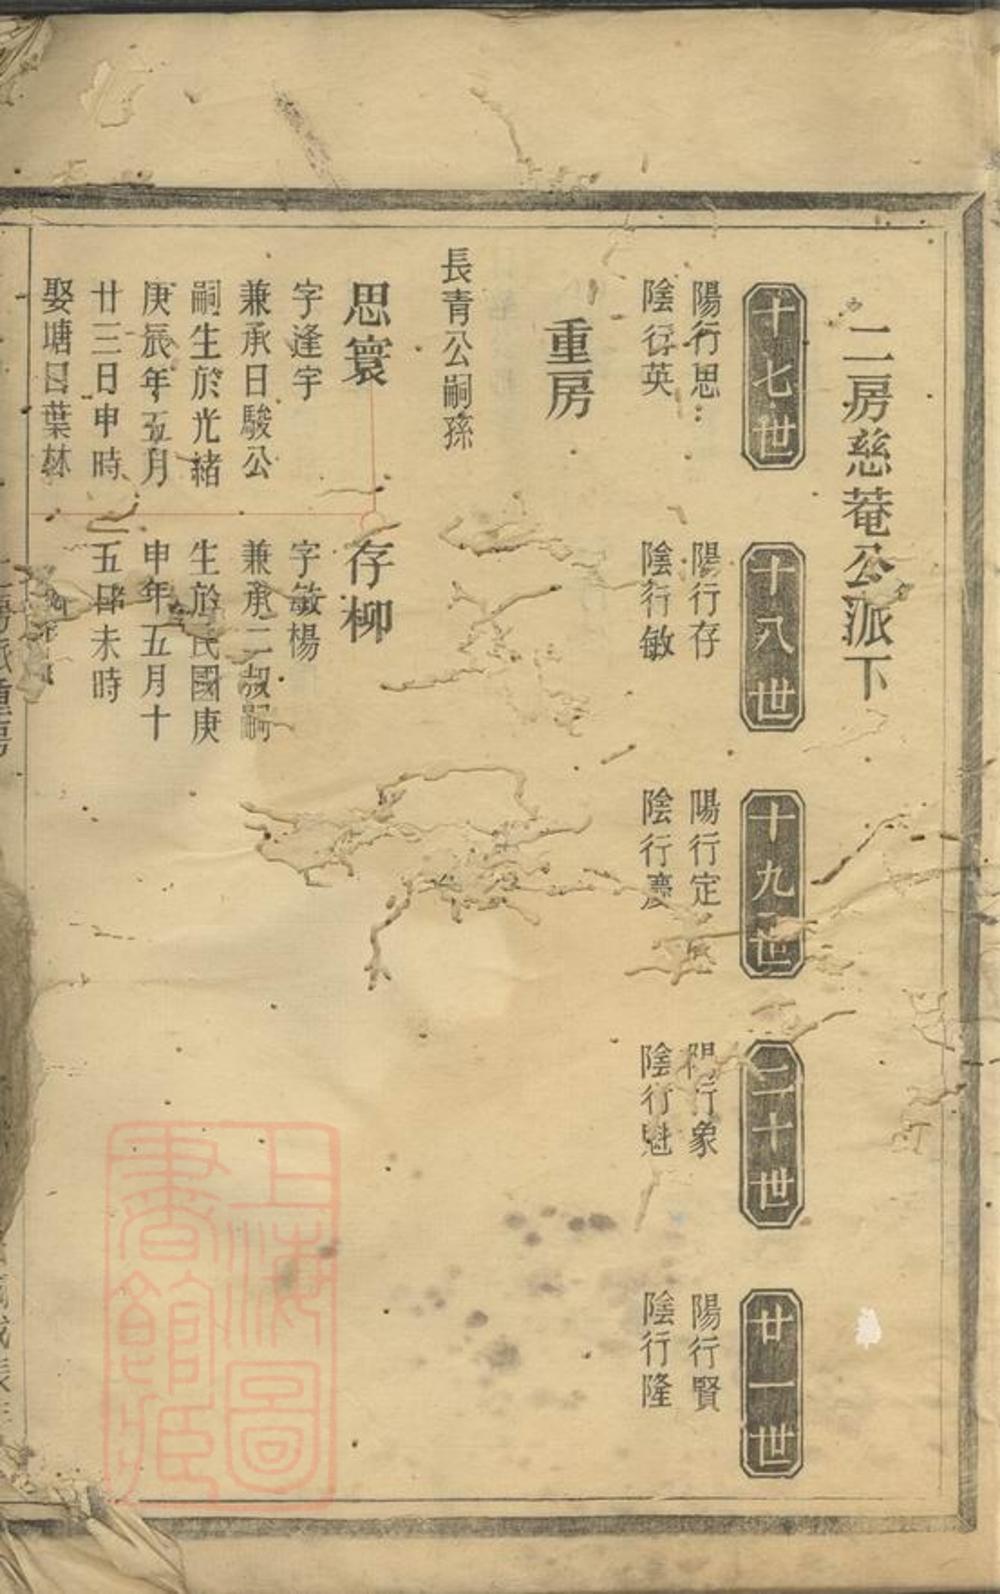 二房慈菴公派下
十七世
陽行思
陰行英
十八世
陽行存
陰行敏
十九世
陽行定
陰行慶
二十世
陽行象
陰行魁
廿一世
陽行賢
陰行隆
重房
長青公嗣孫
思寰
字逢宇
兼承日駿公
嗣生於光緒
庚辰年五月
廿三日申時
娶塘日葉林
存柳
字敏楊
兼承二叔嗣
生於民國庚
申年五月十
五日未時
上海圖
書館藏